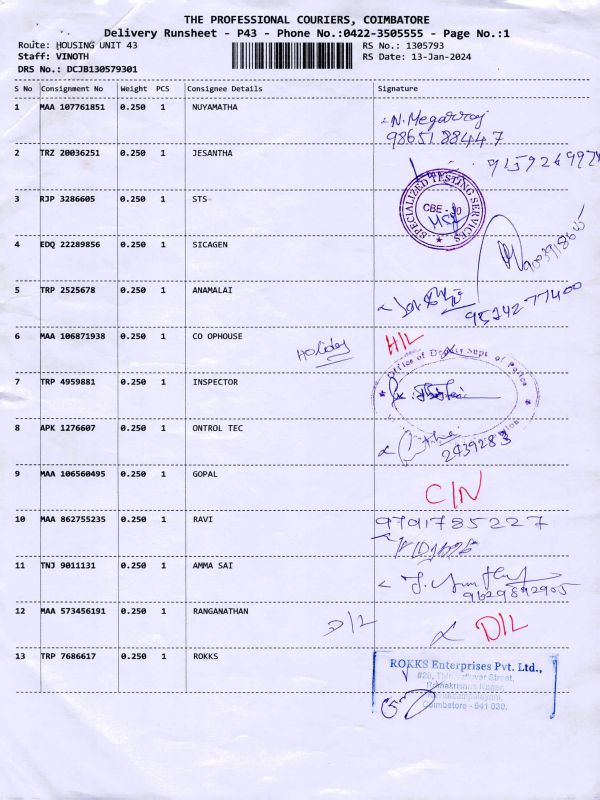 THE PROFESSIONAL COURIERS, COIMBATORE
Delivery Runsheet - P43 - Phone No.:0422-3505555 - Page No.:1
Route: HOUSING UNIT 43 RS No.: 1305793
Staff: VINOTH RS Date: 13-Jan-2024
DRS No.: DCJB130579301
S No Consignment No Weight PCS Consignee Details Signature
1 MAA 107761851 0.250 1 NUYAMATHA
N. Megarraj
9865188447
2 TRZ 20036251 0.250 1 JESANTHA
3 RJP 3286605 0.250 1 STS
SPECIALIZED TESTING SERVICES
CBE
4 EDQ 22289856 0.250 1 SICAGEN
5 TRP 2525678 0.250 1 ANAMALAI
9514277400
6 MAA 106871938 0.250 1 CO OPHOUSE Holiday H/L
7 TRP 4959881 0.250 1 INSPECTOR
Office of Supt of Police
8 APK 1276607 0.250 1 ONTROL TEC
2439283
9 MAA 106560495 0.250 1 GOPAL
C/N
10 MAA 862755235 0.250 1 RAVI 9701785227
11 TNJ 9011131 0.250 1 AMMA SAI
9629892905
12 MAA 573456191 0.250 1 RANGANATHAN D/L D/L
13 TRP 7686617 0.250 1 ROKKS
ROKKS Enterprises Pvt. Ltd.,
Street,
Nagar,
Coimbatore - 641 030.